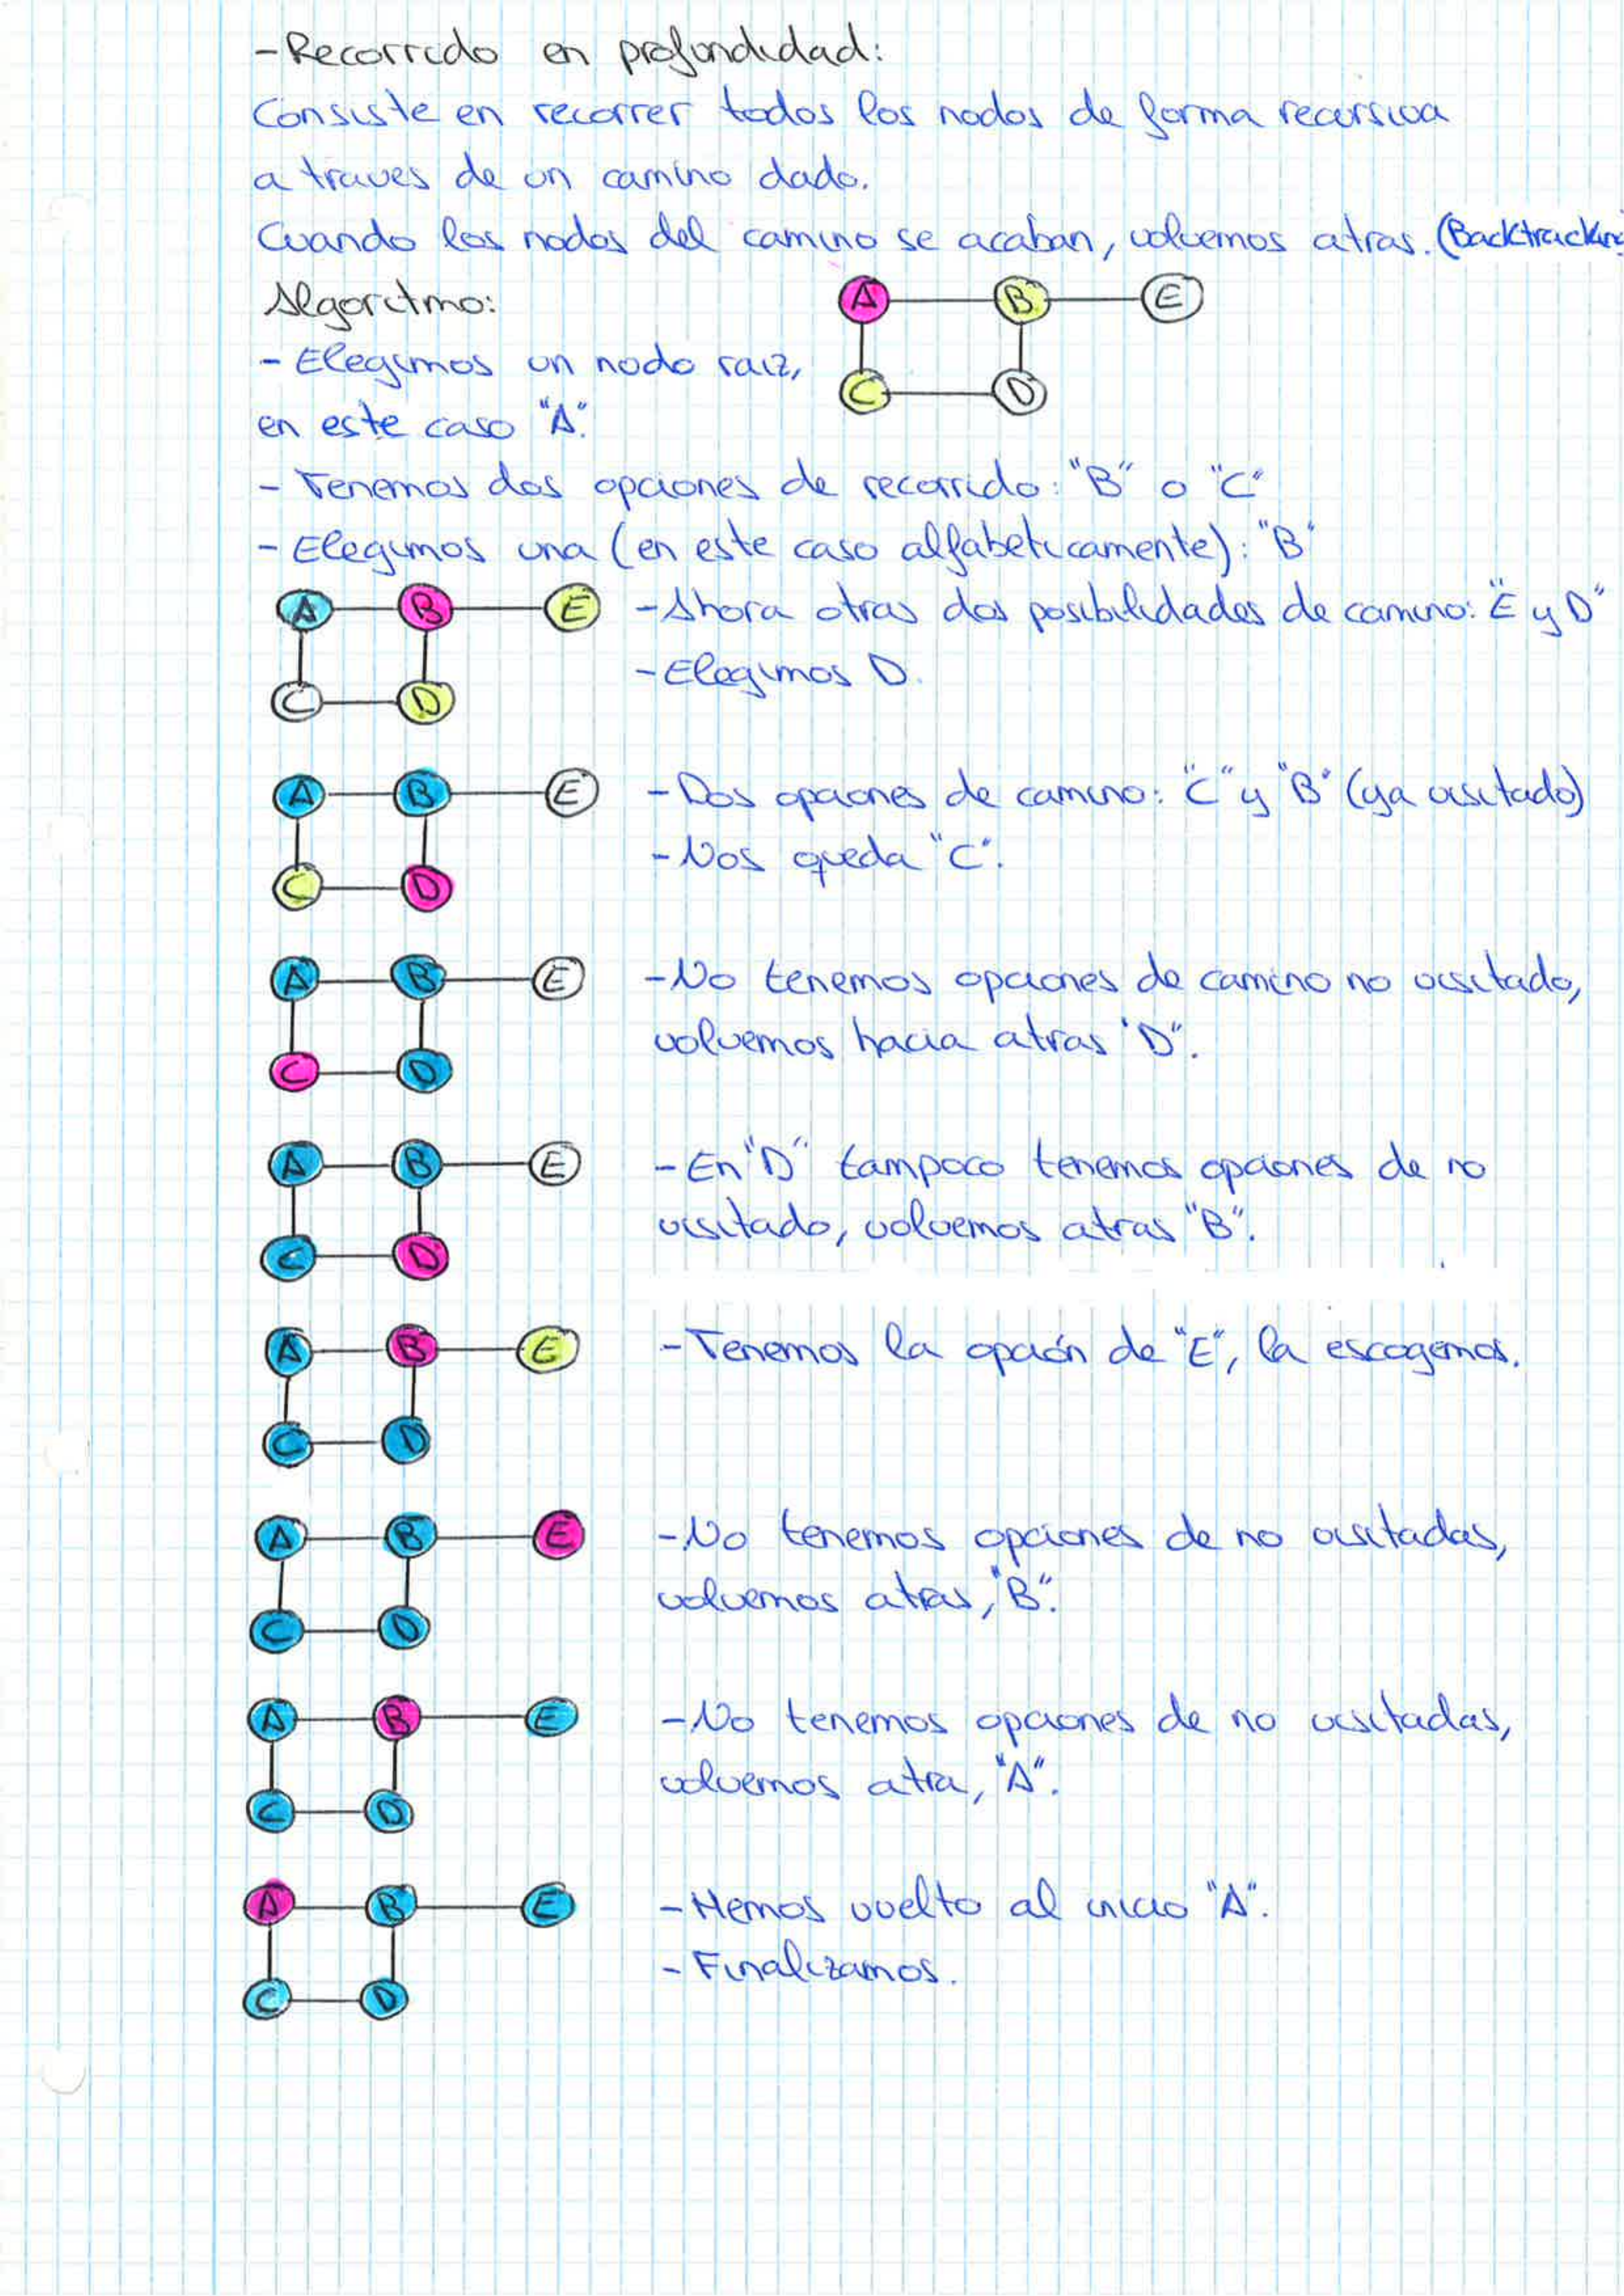 - Recorrido en profundidad:
Consiste en recorrer todos los nodos de forma recursiva
a traves de un camino dado.
Cuando los nodos del camino se acaban, volvemos atras. (Backtracking
Algoritmo:
A B E
- Elegimos un nodo raiz,
C D
en este caso "A".
- Tenemos dos opciones de recorrido: "B" o "C"
- Elegimos una (en este caso alfabeticamente): "B"
A B E - Ahora otras dos posibilidades de camino: "E y D"
C D - Elegimos D.
A B E - Dos opciones de camino: "C" y "B" (ya visitado)
- Nos queda "C".
C D
A B E - No tenemos opciones de camino no visitado,
volvemos hacia atras "D".
C D
A B E - En "D" tampoco tenemos opciones de no
visitado, volvemos atras "B".
C D
A B E - Tenemos la opción de "E", la escogemos.
C D
A B E - No tenemos opciones de no visitadas,
volvemos atras, "B".
C D
A B E - No tenemos opciones de no visitadas,
volvemos atra, "A".
C D
A B E - Hemos vuelto al inicio "A".
- Finalizamos.
C D